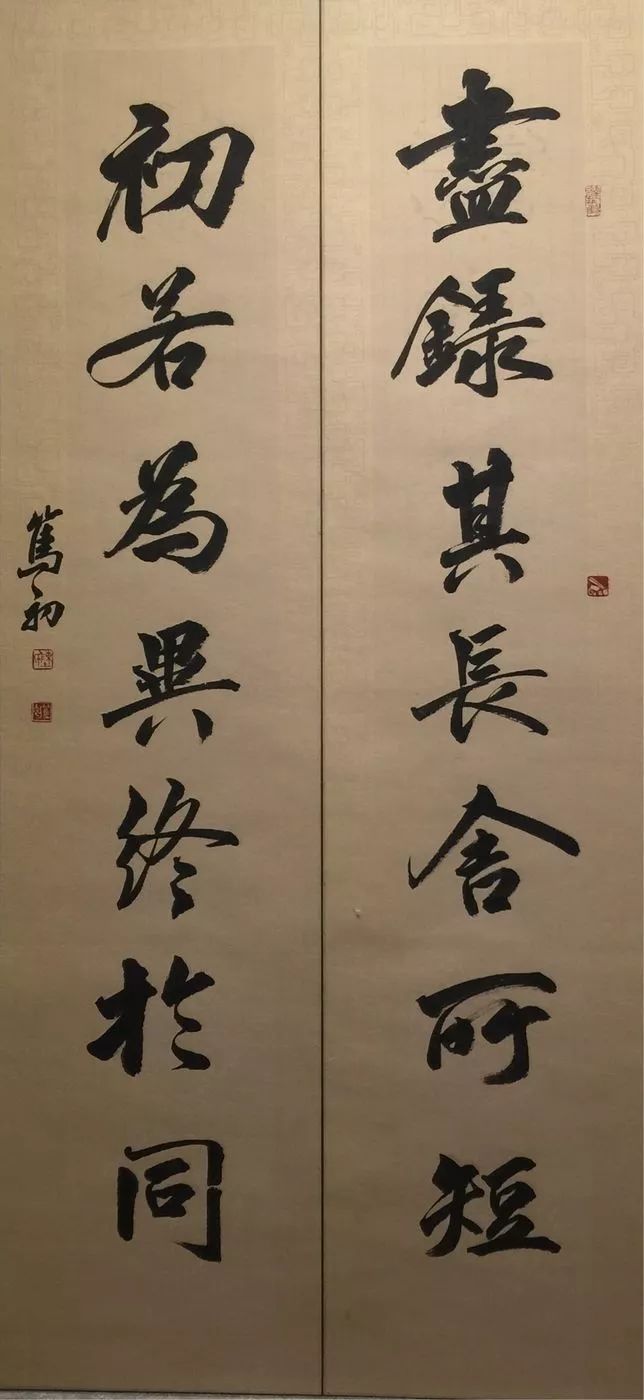 盡錄其長舍所短
初若為異終於同
篤初